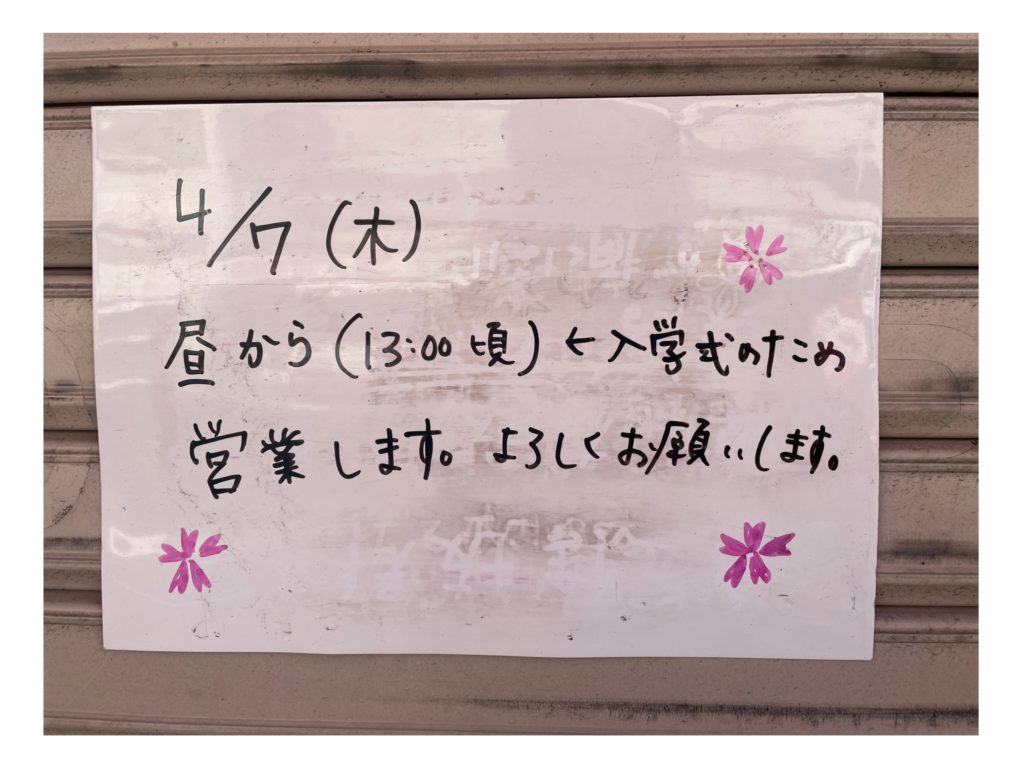 4/7 (木)
昼から (13:00頃) ← 入学式のため
営業します。よろしくお願いします。